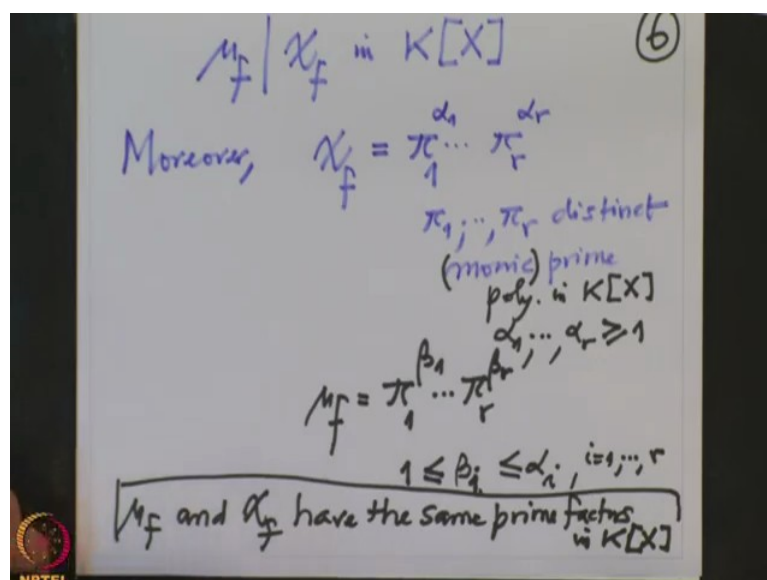 μ_f | χ_f in K[X]
⑥
Moreover, χ_f = π_1^{α_1} ... π_r^{α_r}
π_1, ..., π_r distinct
(monic) prime
poly. in K[X]
α_1, ..., α_r ≥ 1
μ_f = π_1^{β_1} ... π_r^{β_r},
1 ≤ β_i ≤ α_i, i=1, ..., r
μ_f and χ_f have the same prime factors
in K[X]
NPTEL